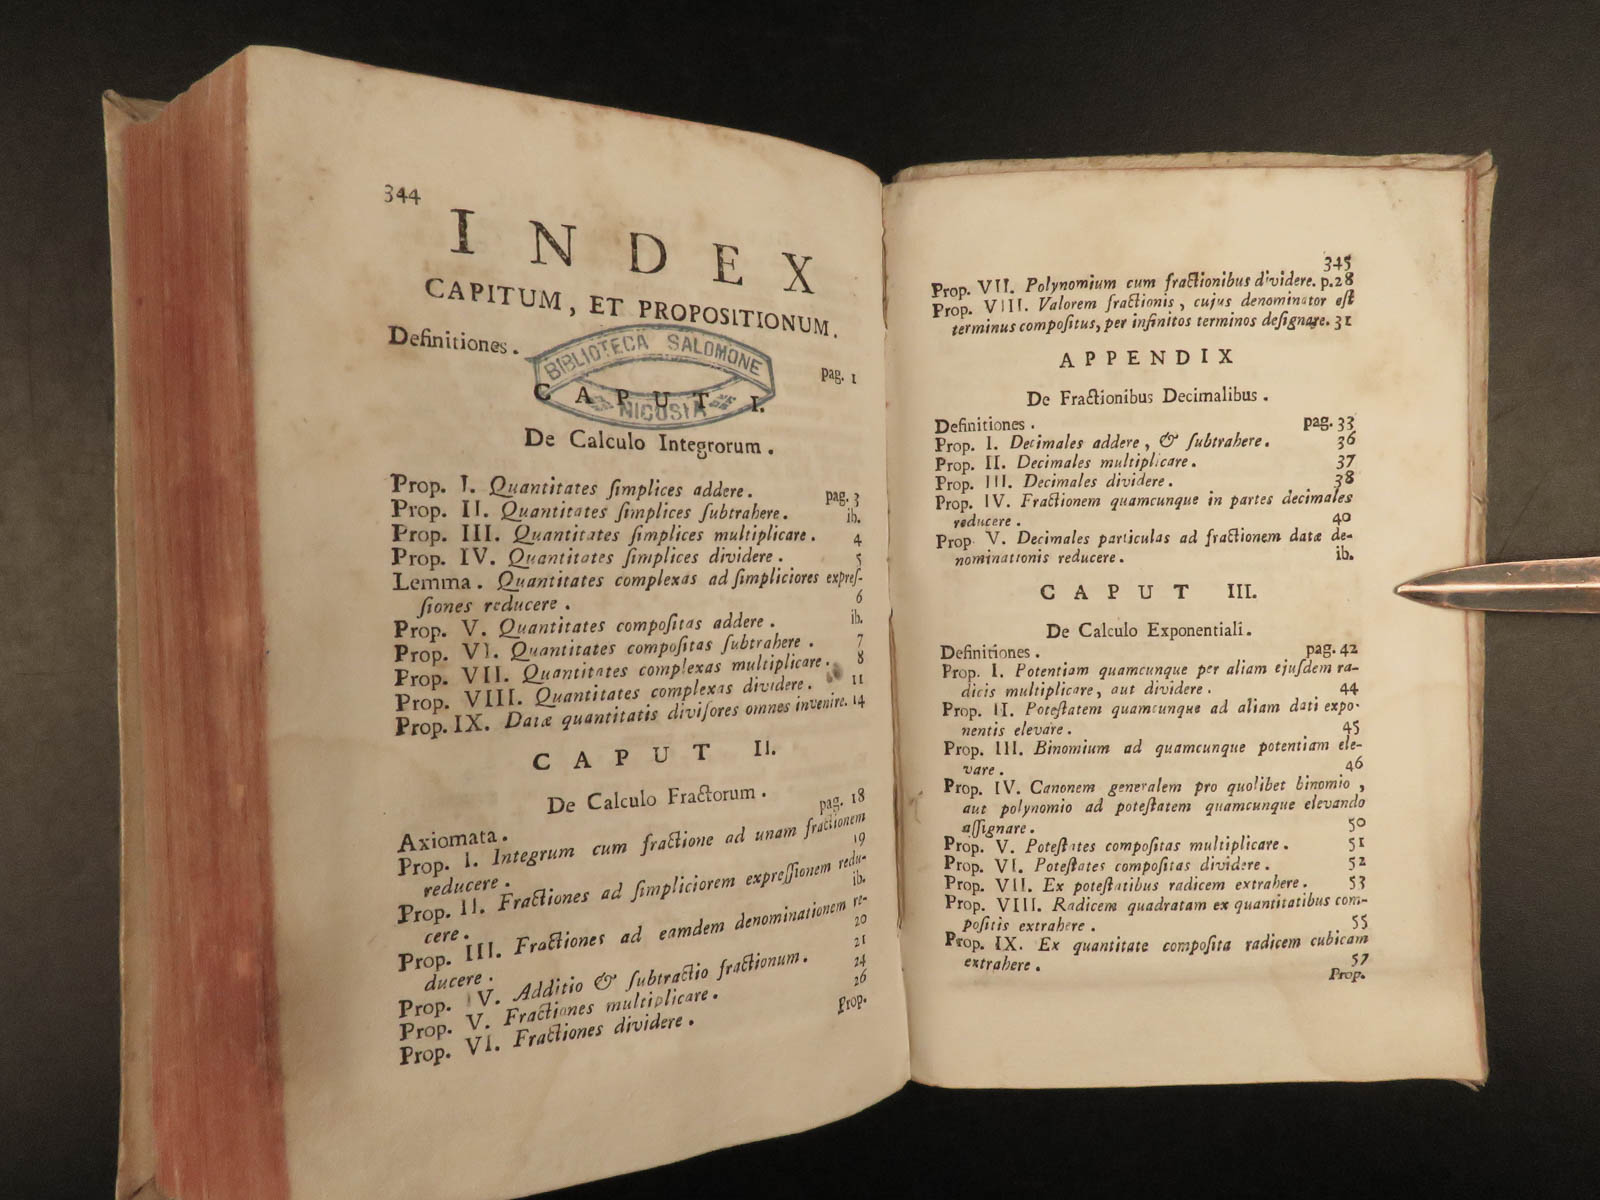 344
INDEX
CAPITUM, ET PROPOSITIONUM.
Definitiones. pag. 1
BIBLIOTECA SALOMONE
NICOSIA
CAPUT I.
De Calculo Integrorum.
Prop. I. Quantitates ſimplices addere. pag. 3
Prop. II. Quantitates ſimplices ſubtrahere. ib.
Prop. III. Quantitates ſimplices multiplicare. 4
Prop. IV. Quantitates ſimplices dividere. 5
Lemma. Quantitates complexas ad ſimpliciores expreſ-
ſiones reducere. 6
Prop. V. Quantitates compoſitas addere. ib.
Prop. VI. Quantitates compoſitas ſubtrahere. 7
Prop. VII. Quantitates complexas multiplicare. 8
Prop. VIII. Quantitates complexas dividere. 11
Prop. IX. Datæ quantitatis diviſores omnes invenire. 14
CAPUT II.
De Calculo Fractorum.
Axiomata. pag. 18
Prop. I. Integrum cum fractione ad unam fractionem
reducere. 19
Prop. II. Fractiones ad ſimpliciorem expreſſionem redu-
cere. ib.
Prop. III. Fractiones ad eamdem denominationem re-
ducere. 20
Prop. V. Additio & ſubtractio fractionum. 21
Prop. V. Fractiones multiplicare. 24
Prop. VI. Fractiones dividere. 26
Prop.
345
Prop. VII. Polynomium cum fractionibus dividere. p.28
Prop. VIII. Valorem fractionis, cujus denominator eſt
terminus compoſitus, per infinitos terminos deſignare. 31
APPENDIX
De Fractionibus Decimalibus.
Definitiones. pag. 33
Prop. I. Decimales addere, & ſubtrahere. 36
Prop. II. Decimales multiplicare. 37
Prop. III. Decimales dividere. 38
Prop. IV. Fractionem quamcunque in partes decimales
reducere. 40
Prop. V. Decimales particulas ad fractionem datæ de-
nominationis reducere. ib.
CAPUT III.
De Calculo Exponentiali.
Definitiones. pag. 42
Prop. I. Potentiam quamcunque per aliam ejuſdem ra-
dicis multiplicare, aut dividere. 44
Prop. II. Poteſtatem quamcunque ad aliam dati expo-
nentis elevare. 45
Prop. III. Binomium ad quamcunque potentiam ele-
vare. 46
Prop. IV. Canonem generalem pro quolibet binomio,
aut polynomio ad poteſtatem quamcunque elevando
aſſignare. 50
Prop. V. Poteſtates compoſitas multiplicare. 51
Prop. VI. Poteſtates compoſitas dividere. 52
Prop. VII. Ex poteſtatibus radicem extrahere. 53
Prop. VIII. Radicem quadratam ex quantitatibus com-
poſitis extrahere. 55
Prop. IX. Ex quantitate compoſita radicem cubicam
extrahere. 57
Prop.